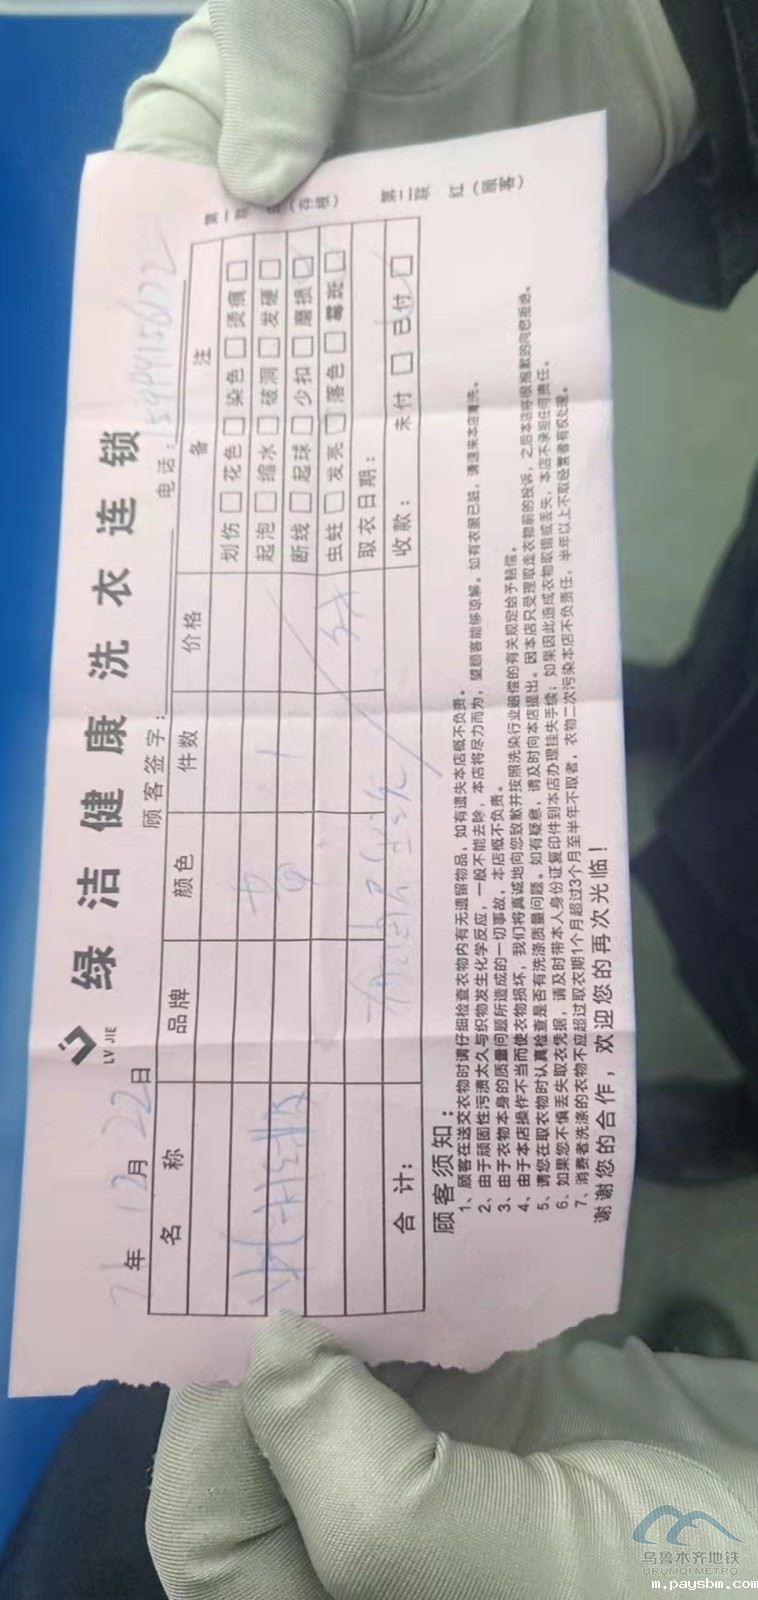 绿洁健康洗衣连锁
LV JIE
年12月22日
顾客签字:
电话:
第一联
(存根)
第二联 红(顾客)
名称 品牌 颜色 件数 价格 备注
划伤□ 花色□ 染色□ 烫痕□
起泡□ 缩水□ 破洞□ 发硬□
断线□ 起球□ 少扣□ 磨损□
虫蛀□ 发亮□ 落色□ 霉斑□
黄 1
取衣日期:
合计:
收款: 未付□ 已付□
顾客须知:
1、顾客在送交衣物时请仔细检查衣物内有无遗留物品,如有遗失本店概不负责。
2、由于顽固性污渍太久与织物发生化学反应,一般不能去除,本店将尽力而为,望顾客能够谅解。如有衣服已脏,请送来本店清洗。
3、由于衣物本身的质量问题所造成的一切事故,本店概不负责。
4、由于本店操作不当而使衣物损坏,我们将真诚地向您致歉并按照洗染行业赔偿的有关规定给予赔偿。
5、请您在取衣物时认真检查是否有洗涤质量问题。如有疑意,请及时向本店提出。因本店只受理取走衣物前的投诉,之后本店将很抱歉的向您拒绝。
6、如果您不慎丢失取衣凭据,请及时带本人身份证复印件到本店办理挂失手续;如果因此造成衣物取错或丢失,本店不承担任何责任。
7、消费者洗涤的衣物不应超过取衣期1个月超过3个月至半年不取者,衣物二次污染本店不负责任,半年以上不取经营者有权处理。
谢谢您的合作,欢迎您的再次光临!
乌鲁木齐地铁
URUMQI METRO
m.paysbm.com